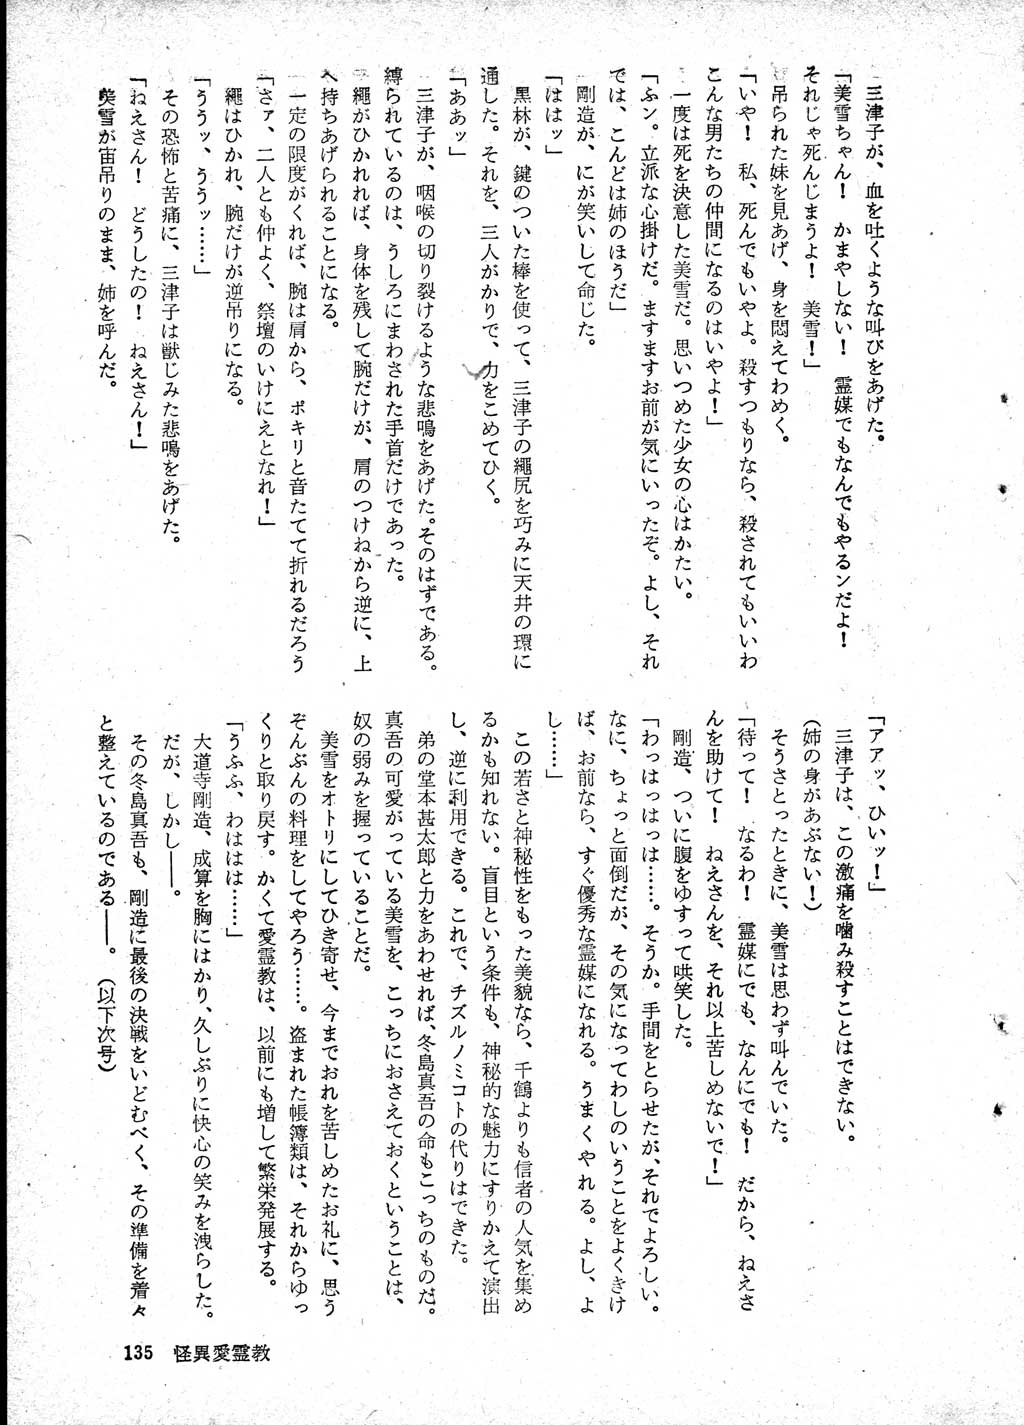 三津子が、血を吐くような叫びをあげた。
「美雪ちゃん！　かまやしない！　霊媒でもなんでもやるンだよ！
それじゃ死んじまうよ！　美雪！」
吊られた妹を見あげ、身を悶えてわめく。
「いや！　私、死んでもいやよ。殺すつもりなら、殺されてもいいわ
こんな男たちの仲間になるのはいやよ！」
一度は死を決意した美雪だ。思いつめた少女の心はかたい。
「ふン。立派な心掛けだ。ますますお前が気にいったぞ。よし、それ
では、こんどは姉のほうだ」
剛造が、にが笑いして命じた。
「ははッ」
黒林が、鍵のついた棒を使って、三津子の縄尻を巧みに天井の環に
通した。それを、三人がかりで、力をこめてひく。
「ああッ」
三津子が、咽喉の切り裂けるような悲鳴をあげた。そのはずである。
縛られているのは、うしろにまわされた手首だけであった。
縄がひかれれば、身体を残して腕だけが、肩のつけねから逆に、上
へ持ちあげられることになる。
一定の限度がくれば、腕は肩から、ポキリと音たてて折れるだろう
「さァ、二人とも仲よく、祭壇のいけにえとなれ！」
縄はひかれ、腕だけが逆吊りになる。
「ううッ、ううッ……」
その恐怖と苦痛に、三津子は獣じみた悲鳴をあげた。
「ねえさん！　どうしたの！　ねえさん！」
美雪が宙吊りのまま、姉を呼んだ。
「アアッ、ひいッ！」
三津子は、この激痛を噛み殺すことはできない。
（姉の身があぶない！）
そうさとったときに、美雪は思わず叫んでいた。
「待って！　なるわ！　霊媒にでも、なんにでも！　だから、ねえさ
んを助けて！　ねえさんを、それ以上苦しめないで！」
剛造、ついに腹をゆすって哄笑した。
「わっはっはっは……。そうか。手間をとらせたが、それでよろしい。
なに、ちょっと面倒だが、その気になってわしのいうことをよくきけ
ば、お前なら、すぐ優秀な霊媒になれる。うまくやれる。よし、よ
し……」
この若さと神秘性をもった美貌なら、千鶴よりも信者の人気を集め
るかも知れない。盲目という条件も、神秘的な魅力にすりかえて演出
し、逆に利用できる。これで、チズルノミコトの代りはできた。
弟の堂本甚太郎と力をあわせれば、冬島真吾の命もこっちのものだ。
真吾の可愛がっている美雪を、こっちにおさえておくということは、
奴の弱みを握っていることだ。
美雪をオトリにしてひき寄せ、今までおれを苦しめたお礼に、思う
ぞんぶんの料理をしてやろう……。盗まれた帳簿類は、それからゆっ
くりと取り戻す。かくて愛霊教は、以前にも増して繁栄発展する。
「うふふ、わははは……」
大道寺剛造、成算を胸にはかり、久しぶりに快心の笑みを洩らした。
だが、しかし――。
その冬島真吾も、剛造に最後の決戦をいどむべく、その準備を着々
と整えているのである――。（以下次号）
135　怪異愛霊教